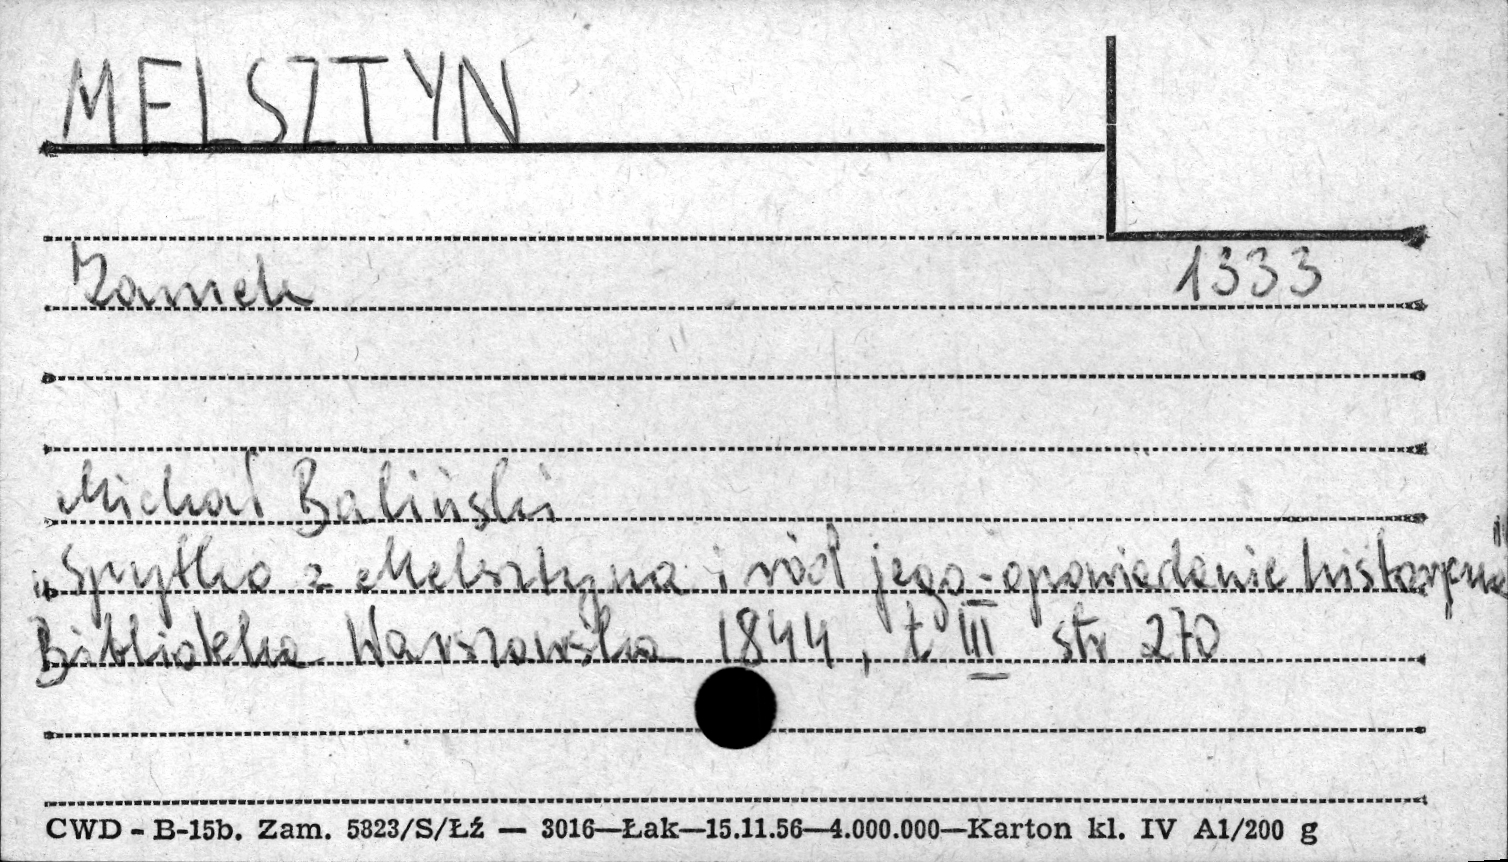 MELSZTYN
Zamek 1333
Michał Baliński
"Spytko z Melsztyna i ród jego - opowiadanie historyczne"
Biblioteka Warszawska 1844, t III str 270
CWD - B-15b. Zam. 5823/S/Łź — 3016—Łak—15.11.56—4.000.000—Karton kl. IV A1/200 g